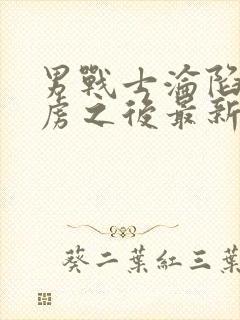 男戰士淪陷
虜之後最新
葵二葉紅三葉